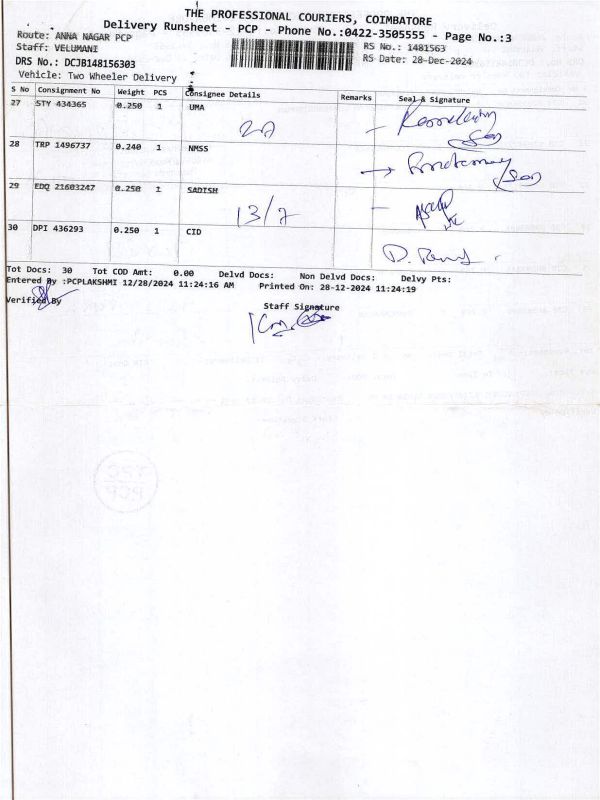 THE PROFESSIONAL COURIERS, COIMBATORE
Delivery Runsheet - PCP - Phone No.:0422-3505555 - Page No.:3
Route: ANNA NAGAR PCP RS No.: 1481563
Staff: VELUMANI RS Date: 28-Dec-2024
DRS No.: DCJB148156303
Vehicle: Two Wheeler Delivery
S No Consignment No Weight PCS Consignee Details Remarks Seal & Signature
27 STY 434365 0.250 1 UMA
28 TRP 1496737 0.240 1 NMSS
29 EDQ 21603247 0.250 1 SADISH
13/7
30 DPI 436293 0.250 1 CID
Tot Docs: 30 Tot COD Amt: 0.00 Delvd Docs: Non Delvd Docs: Delvy Pts:
Entered By :PCPLAKSHMI 12/28/2024 11:24:16 AM Printed On: 28-12-2024 11:24:19
Verified By
Staff Signature